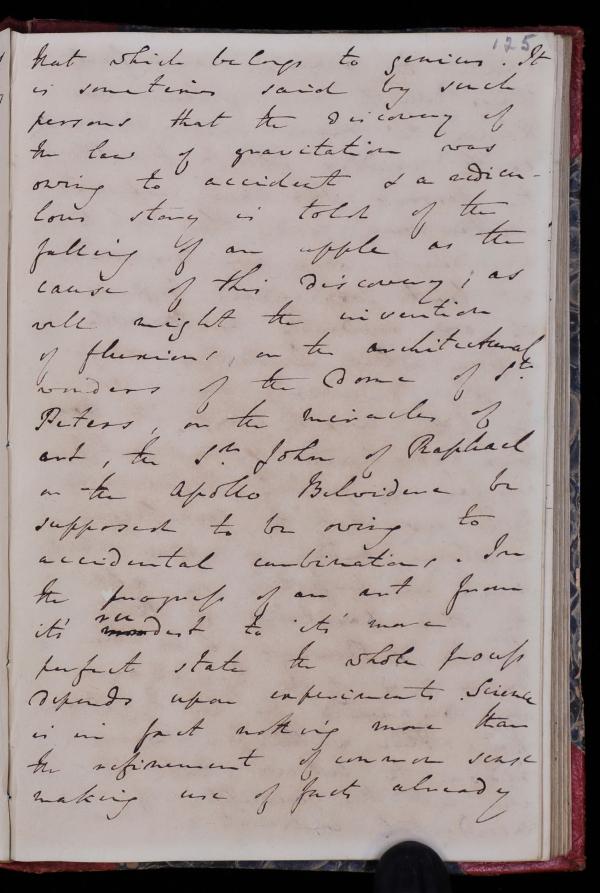 125
that which belongs to genius. It
is sometimes said by such
persons that the discovery of
the law of gravitation was
owing to accident & a ridicu-
lous story is told of the
falling of an apple as the
cause of this discovery; as
well might the invention
of fluxions, or the architectural
wonders of the Dome of St.
Peters, or the miracles of
art, the St. John of Raphael
or the Apollo Belvidere be
supposed to be owing to
accidental combinations. In
the progress of an art from
its rudest to its more
perfect state the whole process
depends upon experiments. Science
is in fact nothing more than
the refinement of common sense
making use of facts already